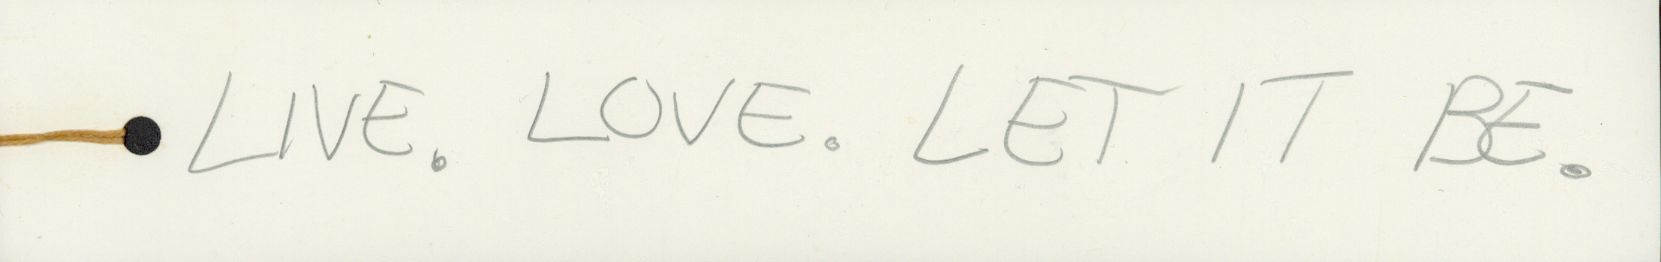 LIVE. LOVE. LET IT BE.